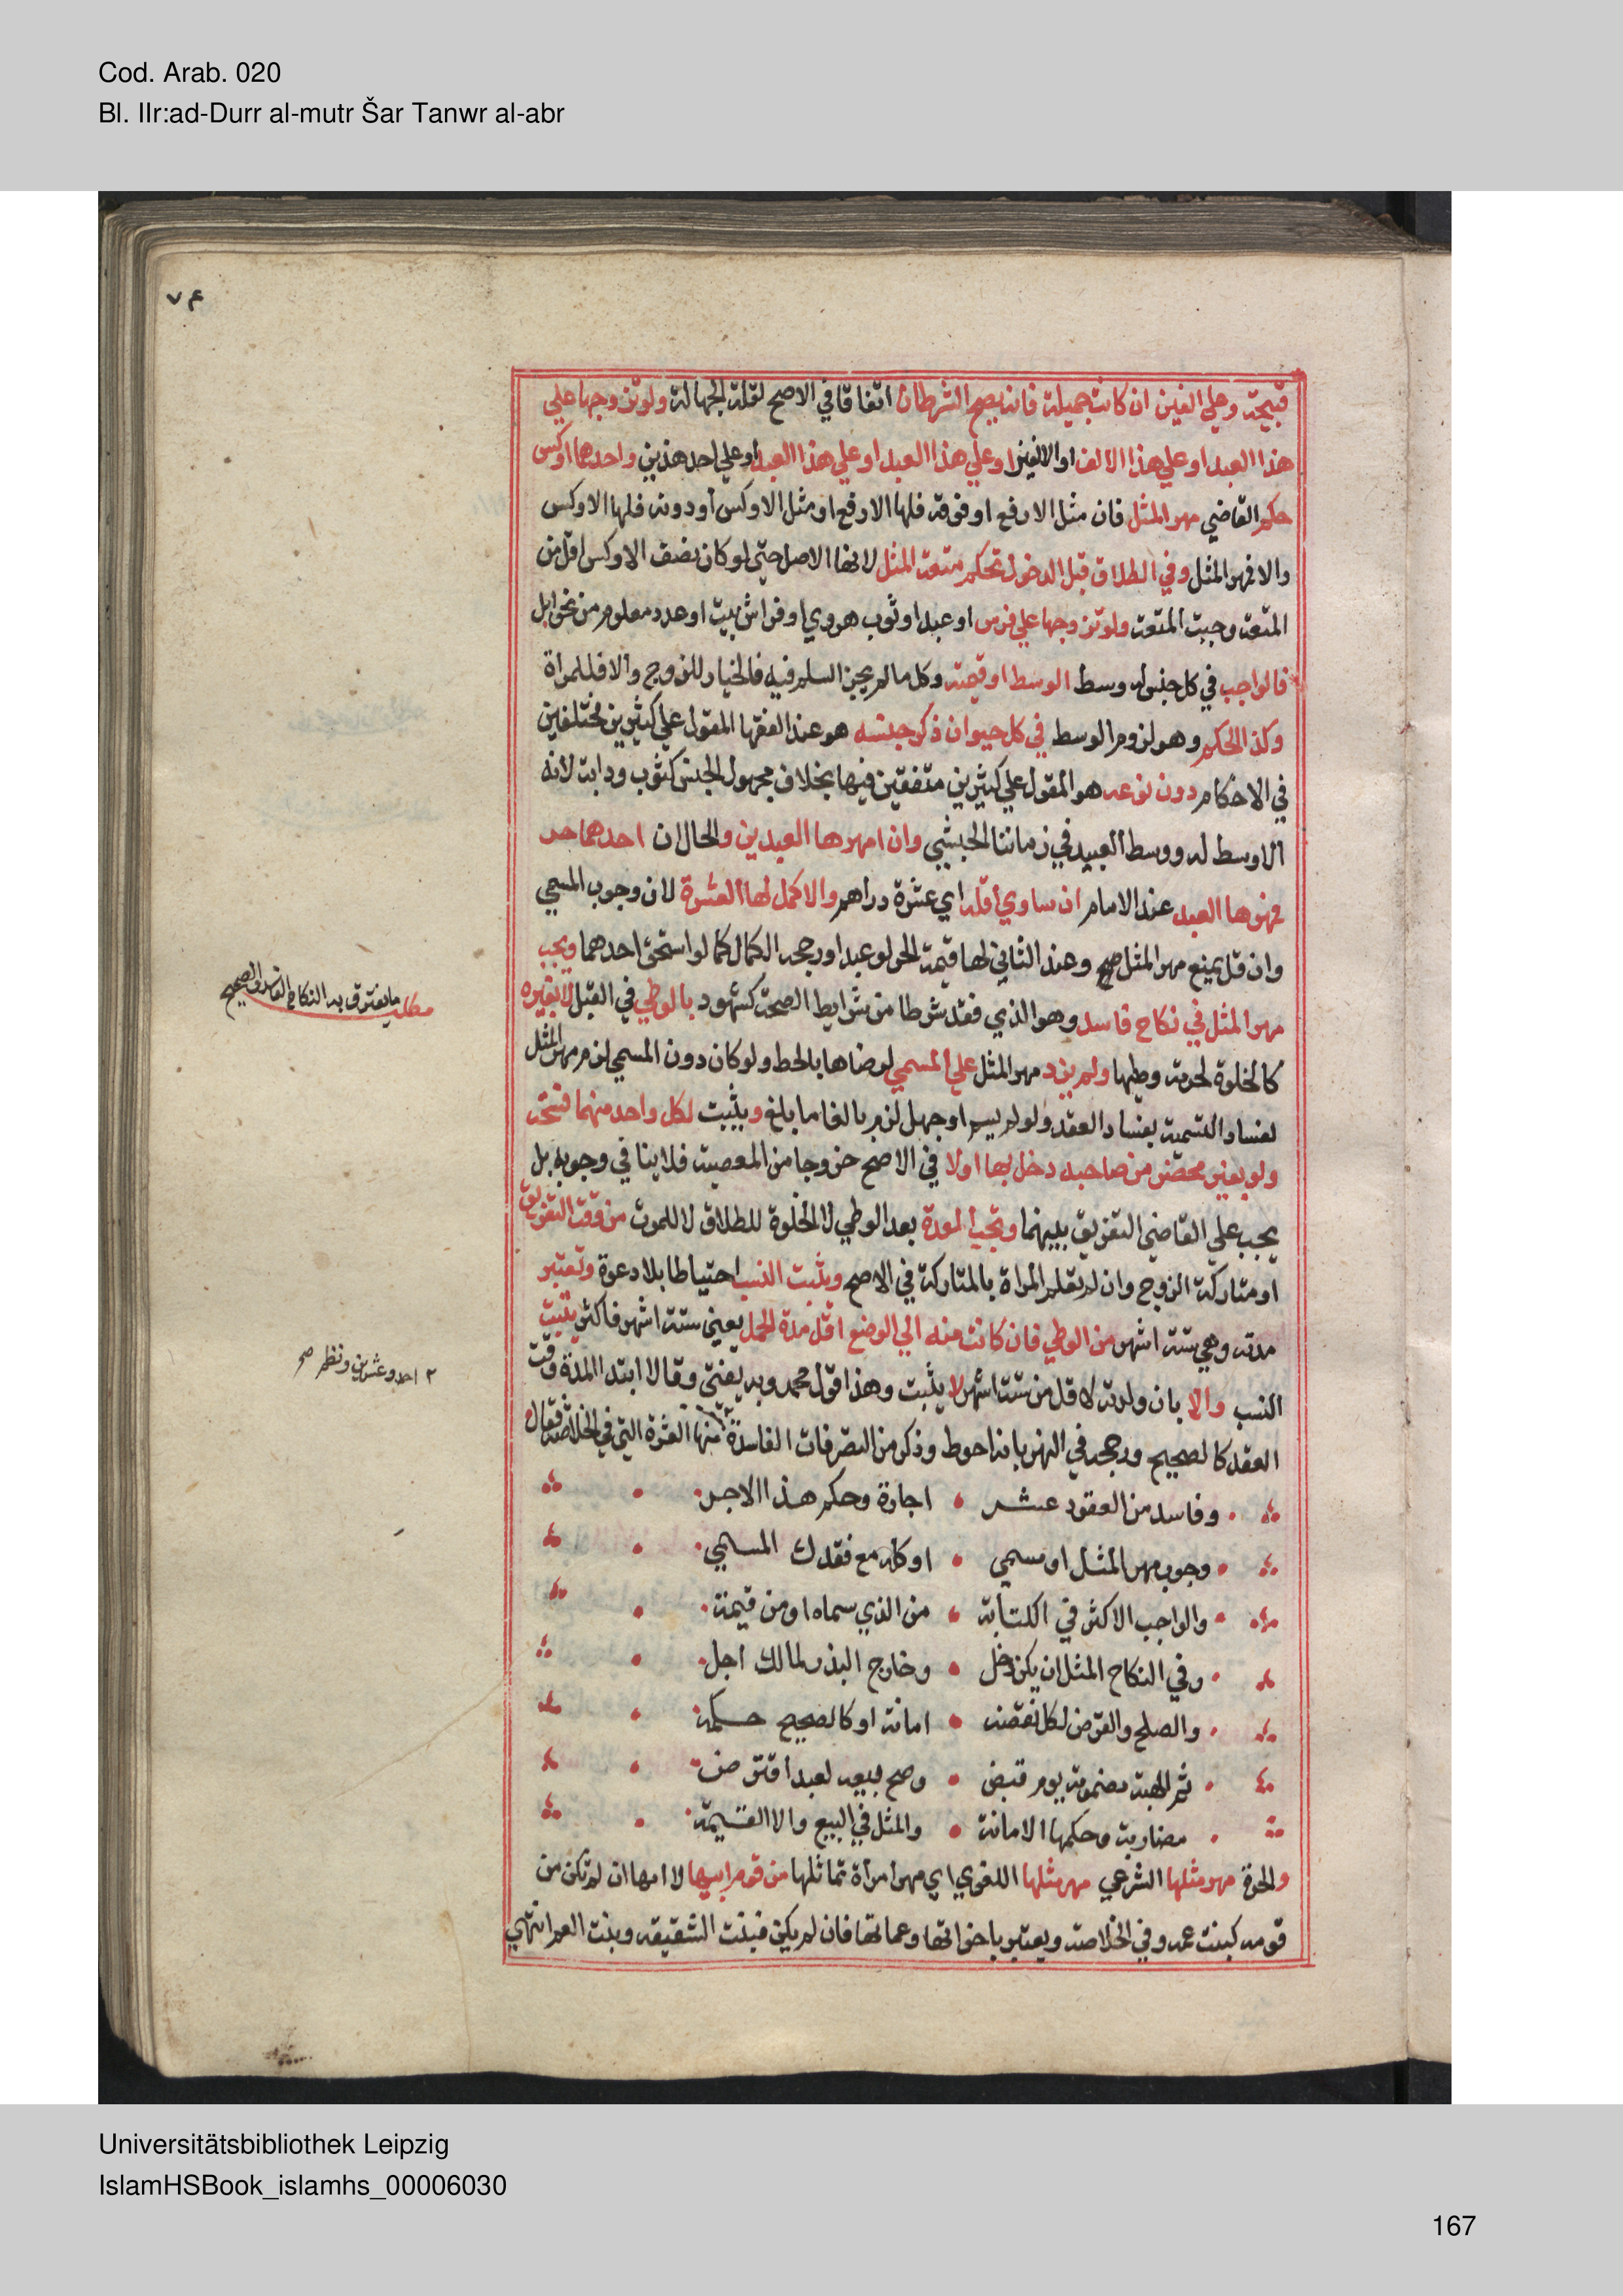 Cod. Arab. 020
Bl. IIr:ad-Durr al-mutr Šar Tanwr al-abr
٧٤
قبيحة وعلي الفين ان كانت جميلة فانه يصح الشرطان اتفاقا في الاصح لقلة الجهالة ولو تزوجها علي
هذا العبد او علي هذا الالف او الالفين او علي هذا العبد او علي هذا العبد او علي احد هذين واحدهما اوكس
حكم القاضي مهر المثل فان مثل الارفع او فوقه فلها الارفع او مثل الاوكس او دونه فلها الاوكس
والا فمهر المثل وفي الطلاق قبل الدخول تحكم متعة المثل لانها الاصل حتي لو كان نصف الاوكس اقل من
المتعة وجبت المتعة ولو تزوجها علي فرس او عبد او ثوب هروي او فراش بيت او عدد معلوم من نحو ابل
فالواجب في كل جنس له وسط الوسط او قيمته وكل ما لم يجز السلم فيه فالخيار للزوج والا فللمراة
وكذا الحكم وهو لزوم الوسط في كل حيوان ذكر جنسه هو عند الفقها المقول علي كثيرين مختلفين
في الاحكام دون نوعه هو المقول علي كثيرين متفقين فيها بخلاف مجهول الجنس كثوب ودابة لانه
الاوسط له ووسط العبيد في زماننا الحبشي وان امهرها العبدين والحال ان احدهما حر
فمهرها العبد عند الامام ان ساوي اقله اي عشرة دراهم والا كمل لها العشرة لان وجوب المسمي
وان قل يمنع مهر المثل صح وعند الثاني لها قيمة الحر لو عبدا ورجحه الكمال كما لو استحق احدهما ويجب
مهر المثل في نكاح فاسد وهو الذي فقد شرطا من شرايط الصحة كشهود بالوطي في القبل لا بغيره
كالخلوة لحرمة وطيها ولم يزد مهر المثل علي المسمي لرضاها بالحط ولو كان دون المسمي لزم مهر المثل
لفساد التسمية بفساد العقد ولو لم يسم او جهل لزم بالغا ما بلغ ويثبت لكل واحد منهما فسخه
ولو بغير محضر من صاحبه دخل بها اولا في الاصح خروجا من المعصية فلا ينافي وجوبه بل
يجب علي القاضي التفريق بينهما وتجب العدة بعد الوطي لا الخلوة للطلاق لا للموت من وقت التفريق
او متاركة الزوج وان لم تعلم المراة بالمتاركة في الاصح ويثبت النسب احتياطا بلا دعوة وتعتبر
مدته وهي ستة اشهر من الوطي فان كانت منه الي الوضع اقل مدة الحمل يعني ستة اشهر فاكثر يثبت
النسب والا بان ولدته لاقل من ستة اشهر لا يثبت وهذا قول محمد وبه يفتي وقالا ابتدا المدة وقت
العقد كالصحيح ورجحه في النهر بانه احوط وذكر من التصرفات الفاسدة ٢ منها العشرة التي في الخلاصة فقال
وفاسد من العقود عشر اجارة وحكم هذا الاجر
وجوب مهر المثل او مسمي او كله مع فقدك المسمي
والواجب الاكثر في الكتابة من الذي سماه او من قيمة
وفي النكاح المثل ان يكن دخل وخارج البذر لمالك اجل
والصلح والقرض لكل نقضه امانة او كالصحيح حكمه
ثم الهبة مضمونة يوم قبض وصح بيعه لعبد اقترض
مضاربة وحكمها الامانة والمثل في البيع والا القيمة
والحرة مهر مثلها الشرعي مهر مثلها اللغوي اي مهر امراة تماثلها من قوم ابيها لا امها ان لم تكن من
قومه كبنت عمه وفي الخلاصة ويعتبر باخواتها وعماتها فان لم يكن فبنت الشقيقة وبنت العم انتهي
مطلب ما يفترق به النكاح الفاسد والصحيح
٢ احد وعشرين ونظم صح
Universitätsbibliothek Leipzig
IslamHSBook_islamhs_00006030
167